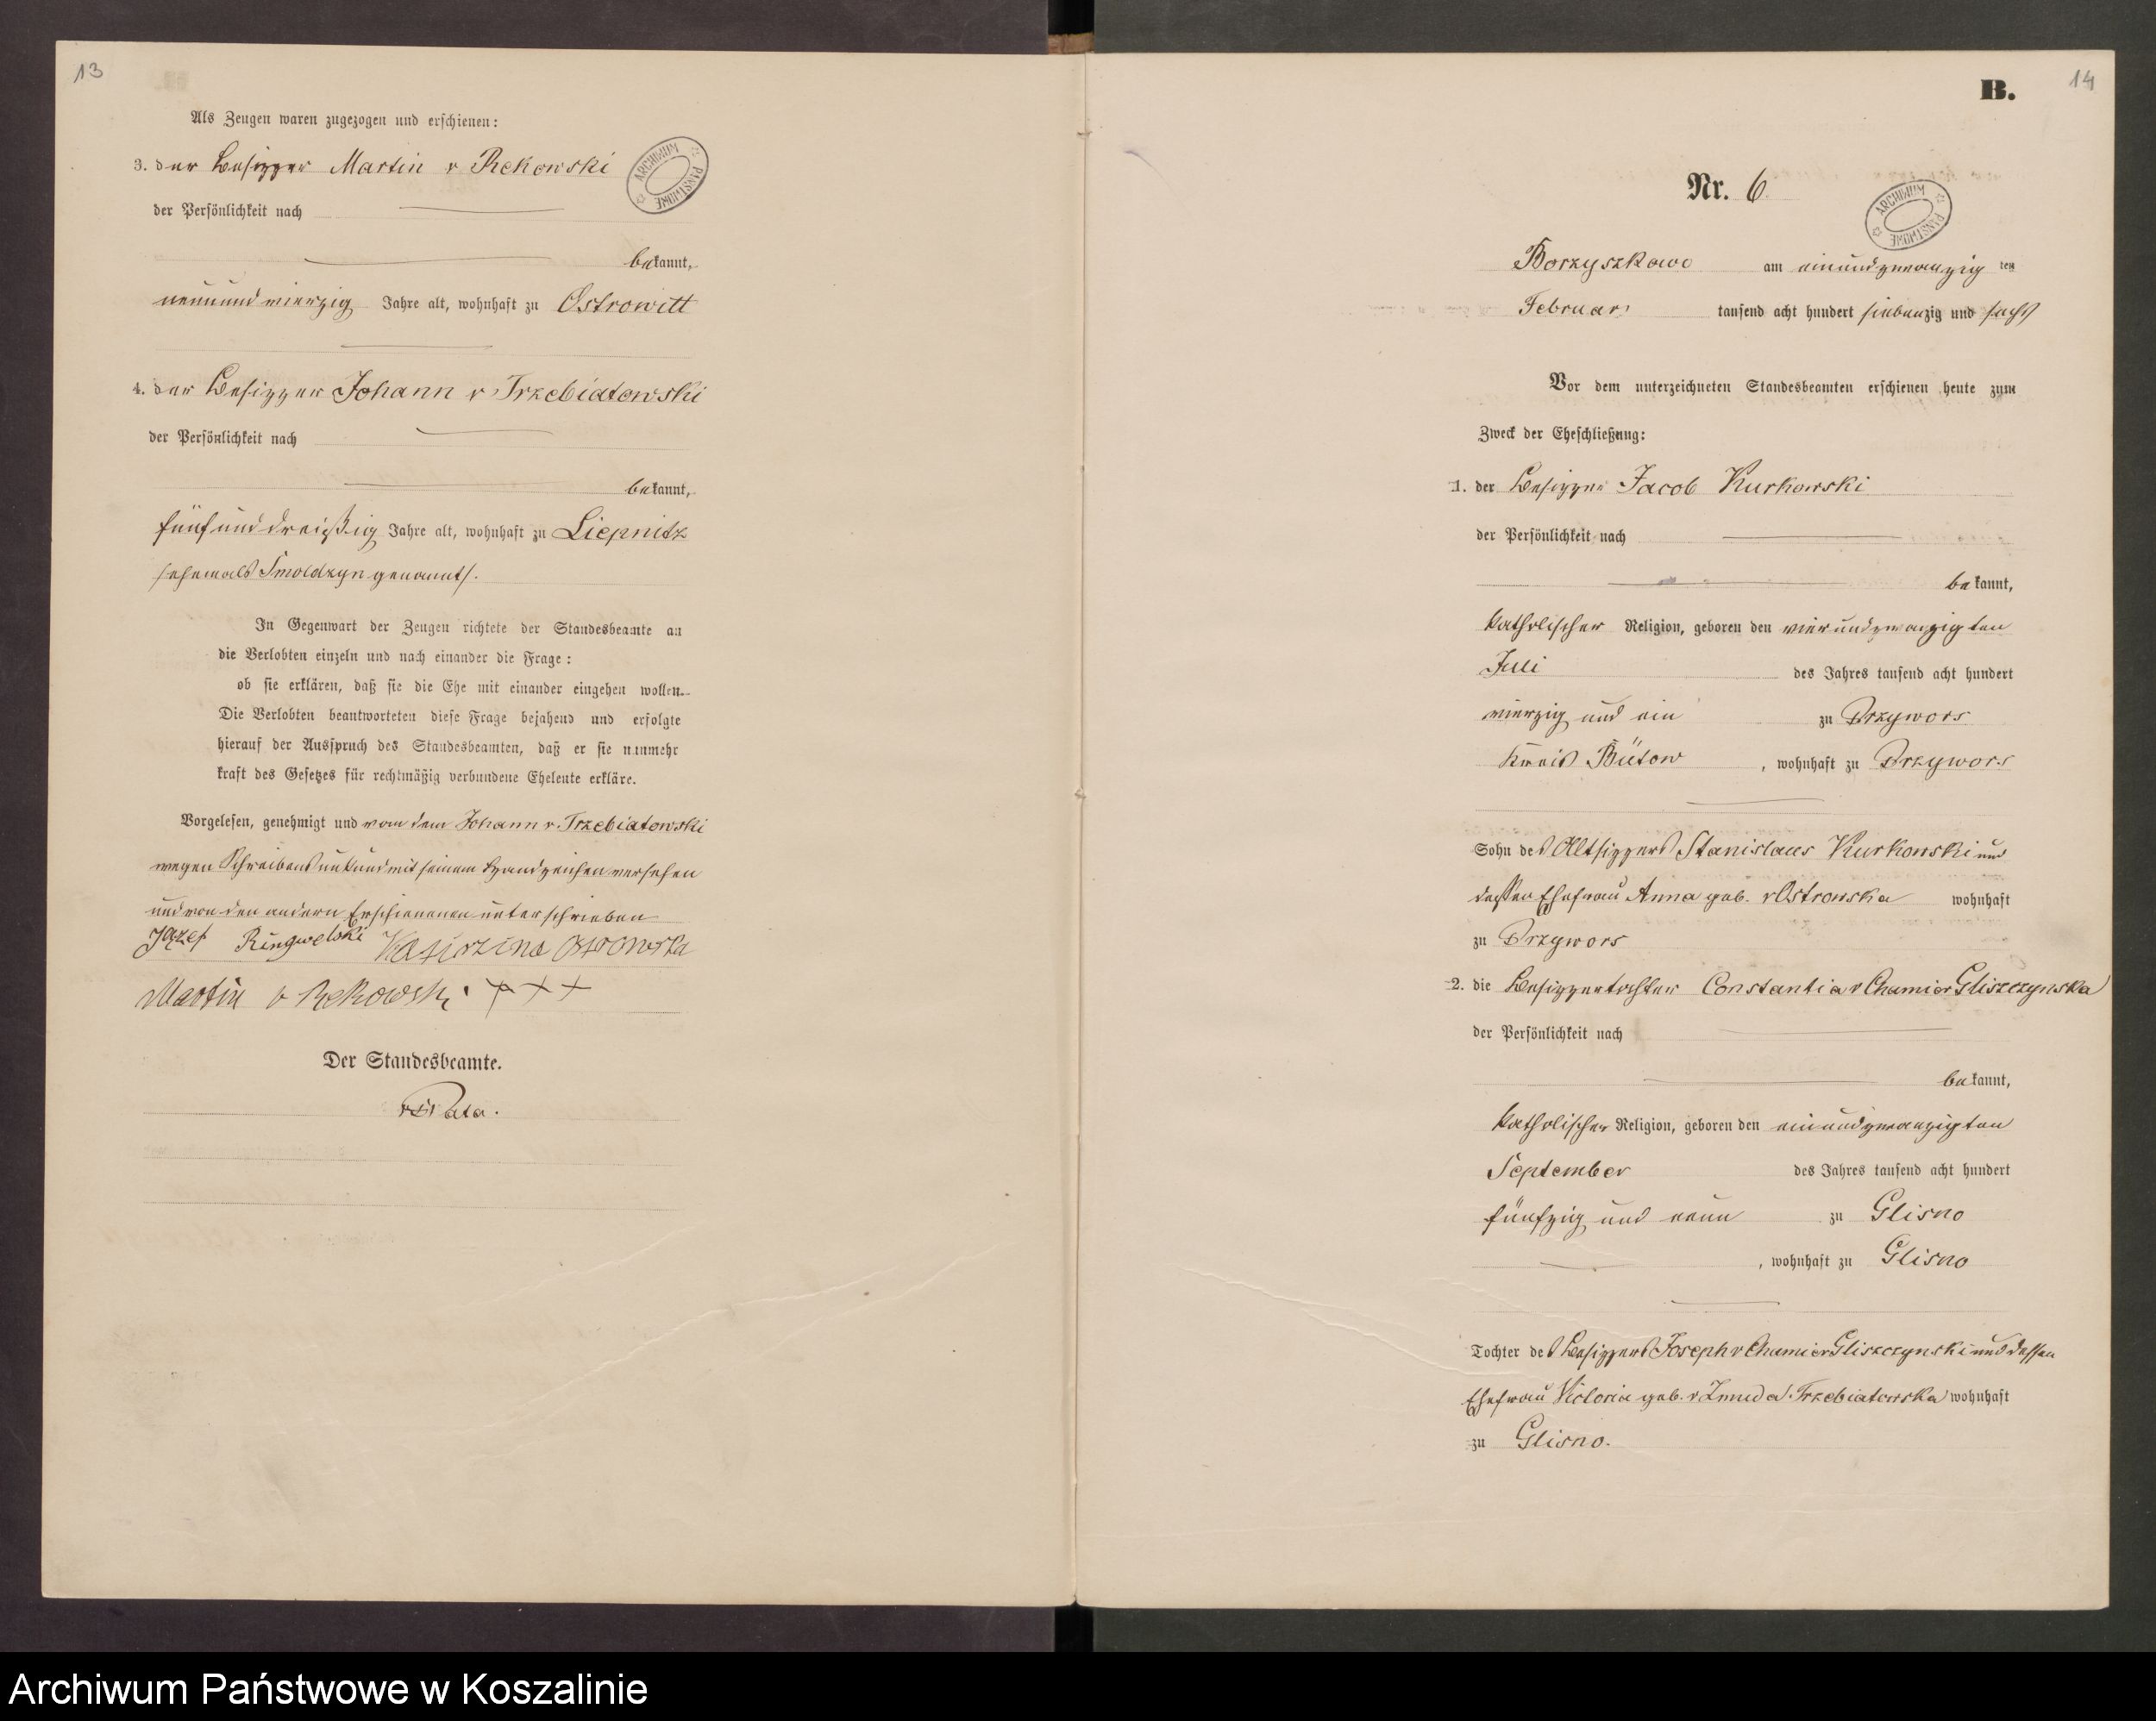 13
Als Zeugen waren zugezogen und erschienen:
3. der Besitzer Martin v Rekowski
ARCHIWUM PAŃSTWOWE
der Persönlichkeit nach
bekannt,
neunundvierzig Jahre alt, wohnhaft zu Ostrowitt
4. der Besitzer Johann v Trzebiatowski
der Persönlichkeit nach
bekannt,
fünfunddreißig Jahre alt, wohnhaft zu Liepnitz
/ehemals Smoldzyn genannt/.
In Gegenwart der Zeugen richtete der Standesbeamte an
die Verlobten einzeln und nach einander die Frage:
ob sie erklären, daß sie die Ehe mit einander eingehen wollen.
Die Verlobten beantworteten diese Frage bejahend und erfolgte
hierauf der Ausspruch des Standesbeamten, daß er sie nunmehr
kraft des Gesetzes für rechtmäßig verbundene Eheleute erkläre.
Vorgelesen, genehmigt und von dem Johann v. Trzebiatowski
wegen Schreibensunkund mit seinem Handzeichen versehen
und von den andern Erschienenen unterschrieben
Jązef Ringwelski Katirzina Ostrowska
Martin v Rekowski +++
Der Standesbeamte.
14
B.
Nr. 6.
ARCHIWUM PAŃSTWOWE
Borzyszkowo am einundzwanzig ten
Februar tausend acht hundert siebenzig und sechs
Vor dem unterzeichneten Standesbeamten erschienen heute zum
Zweck der Eheschließung:
1. der Besitzer Jacob Kurkowski
der Persönlichkeit nach
bekannt,
katholischer Religion, geboren den vierundzwanzigten
Juli des Jahres tausend acht hundert
vierzig und ein zu Przywors
Kreis Bütow, wohnhaft zu Przywors
Sohn des Altsitzers Stanislaus Kurkowski und
dessen Ehefrau Anna geb. v Ostrowska wohnhaft
zu Przywors
2. die Besitzertochter Constantia v Chamier Gliszczynska
der Persönlichkeit nach
bekannt,
katholischer Religion, geboren den einundzwanzigten
September des Jahres tausend acht hundert
fünfzig und neun zu Glisno
, wohnhaft zu Glisno
Tochter des Besitzers Joseph v Chamier Gliszczynski und dessen
Ehefrau Victoria geb. v Zmuda Trzebiatowska wohnhaft
zu Glisno.
Archiwum Państwowe w Koszalinie